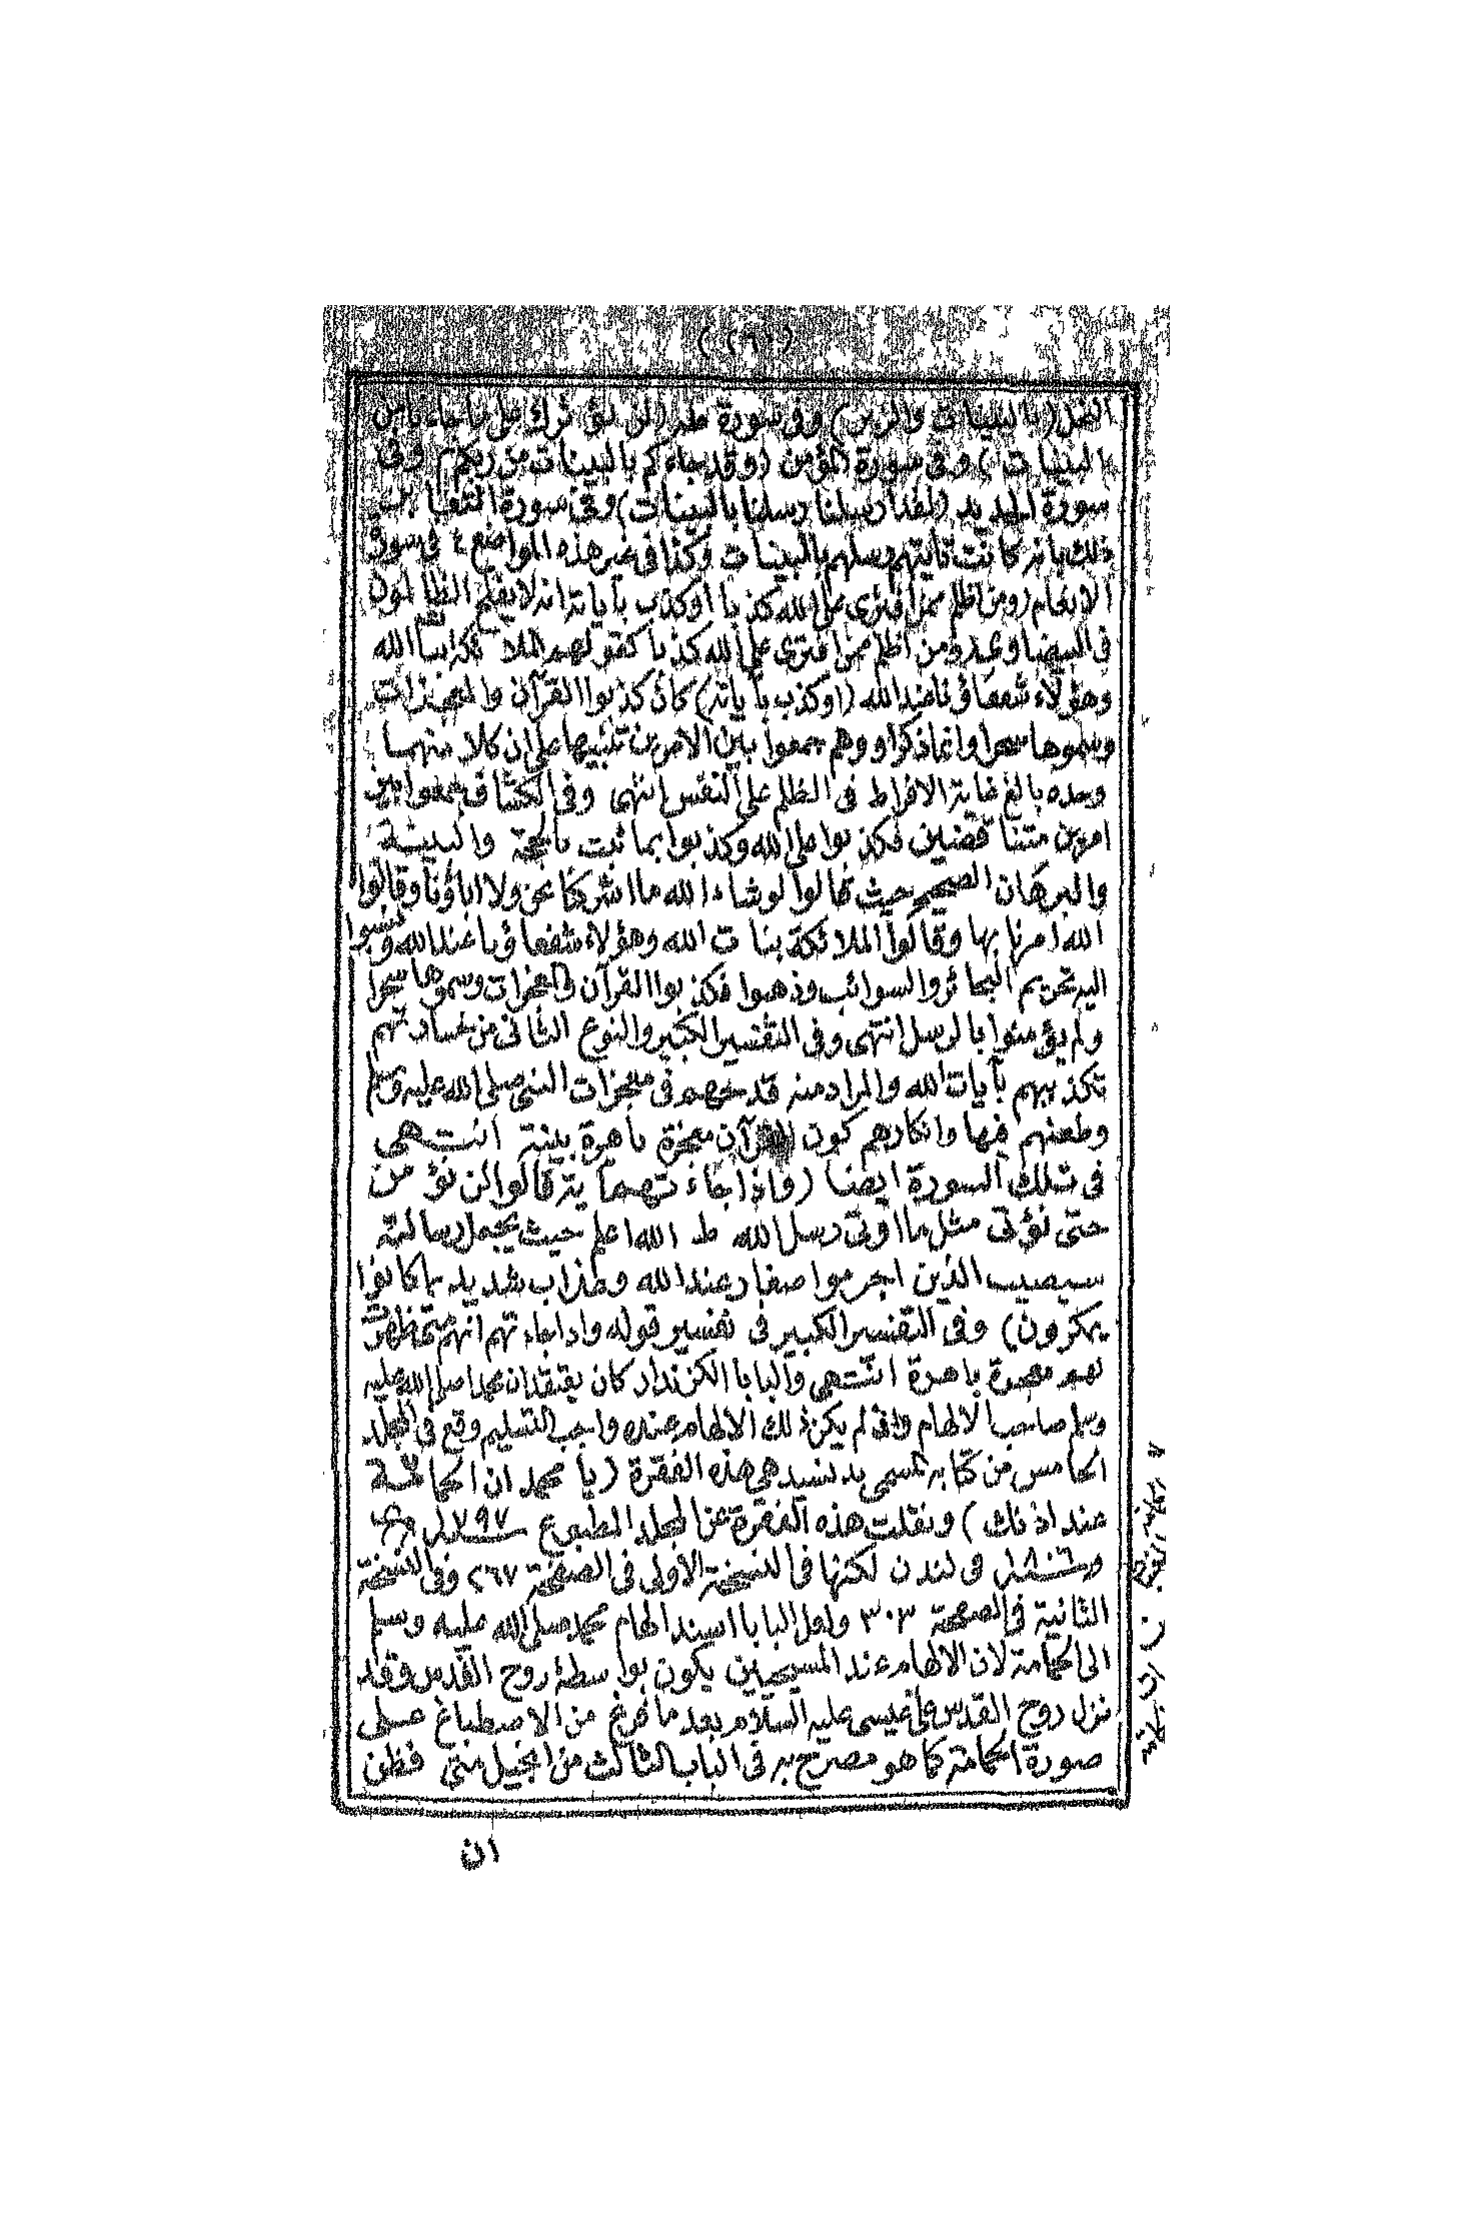 النحل (بالبينات والزبر) وفى سورة طه (لن نؤثرك على ما جاءنا من
البينات) وفى سورة المؤمن (وقد جاءكم بالبينات من ربكم) وفى
سورة الحديد (لقد ارسلنا رسلنا بالبينات) وفى سورة التغابن
ذلك بانه كانت تاتيهم رسلهم بالبينات وكذا فى غير هذه المواضع فى سورة
الانعام (ومن اظلم ممن افترى على الله كذبا او كذب بآياته انه لا يفلح الظالمون
فى البيضاوى ومن اظلم ممن افترى على الله كذبا كقولهم الملائكة بنات الله
وهؤلاء شفعاؤنا عند الله (او كذب بآياته) كان كذبوا القرآن والمعجزات
وسموها سحرا وانما ذكر او وهم جمعوا بين الامرين تنبيها على ان كلا منهما
وحده بالغ غاية الافراط فى الظلم على النفس انتهى وفى الكشاف جمعوا بين
امرين متناقضين فكذبوا على الله وكذبوا بما ثبت بالحجة والبينة
والبرهان الصحيح حيث قالوا لو شاء الله ما اشركنا نحن ولا اباؤنا وقالوا
الله امرنا بها وقالوا الملائكة بنات الله وهؤلاء شفعاؤنا عند الله ونسبوا
اليه تحريم البحائر والسوائب وذهبوا فكذبوا القرآن والمعجزات وسموها سحرا
ولم يؤمنوا بالرسل انتهى وفى التفسير الكبير والنوع الثانى من خسارتهم
تكذيبهم بآيات الله والمراد منه قدحهم فى معجزات النبى صلى الله عليه وسلم
وطعنهم فيها وانكارهم كون القرآن معجزة باهرة بينة انتهى
فى تلك السورة ايضا (واذا جاءتهم آية قالوا لن نؤمن
حتى نؤتى مثل ما اوتى رسل الله ط الله اعلم حيث يجعل رسالته
سيصيب الذين اجرموا صغار عند الله وعذاب شديد بما كانوا
يمكرون) وفى التفسير الكبير فى تفسير قوله واذا جاءتهم انهم متى ظهرت
لهم معجزة باهرة انتهى والبابا الكزندار كان يعتقد ان محمدا صلى الله عليه
وسلم صاحب الالهام وان لم يكن ذلك الالهام عنده واجب التسليم وقع فى المجلد
الخامس من كتابه المسمى بدنسيد هى هذه الفقرة (يا محمد ان الحمامة
عند اذنك) ونقلت هذه الفقرة عن المجلد المطبوع ١٧٩٧
فى لندن لكنها فى النسخة الاولى فى الصفحة ٢٦٧ وفى النسخة
الثانية فى الصفحة ٣٠٣ ولعل البابا اسند الهام محمد صلى الله عليه وسلم
الى الحمامة لان الالهام عند المسيحيين يكون بواسطة روح القدس وقد
نزل روح القدس على عيسى عليه السلام بعد ما فرغ من الاصطباغ على
صورة الحمامة كما هو مصرح به فى الباب الثالث من انجيل متى فظن
ان